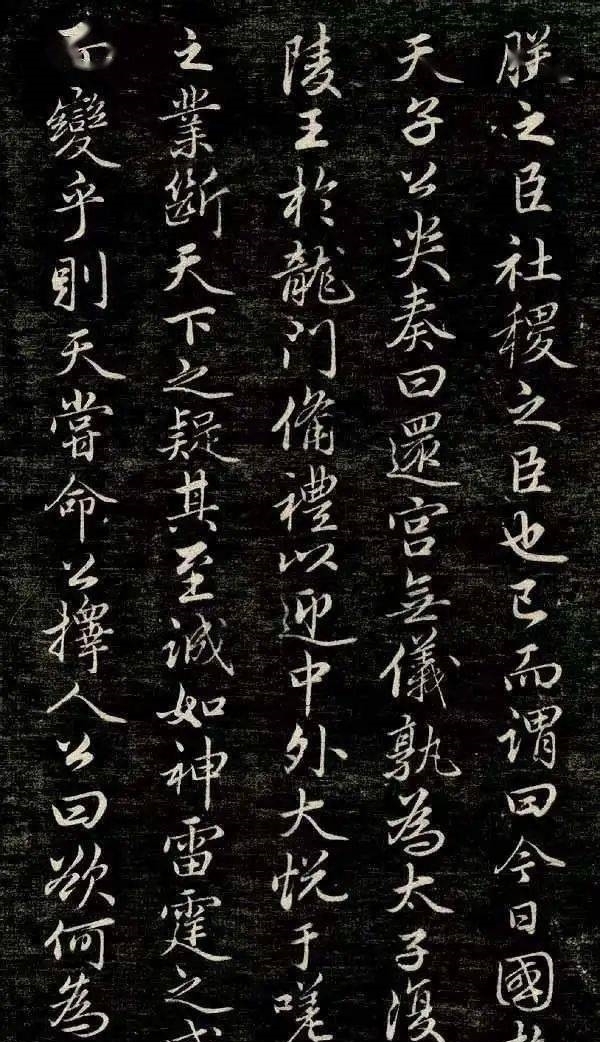 朕之臣社稷之臣也已而謂曰今日國
天子公哭奏曰還宮無儀孰為太子復
陵王於龍門備禮以迎中外大悅于嗟
之業斷天下之疑其至誠如神雷霆之
而變乎則天嘗命公擇人公曰欲何為